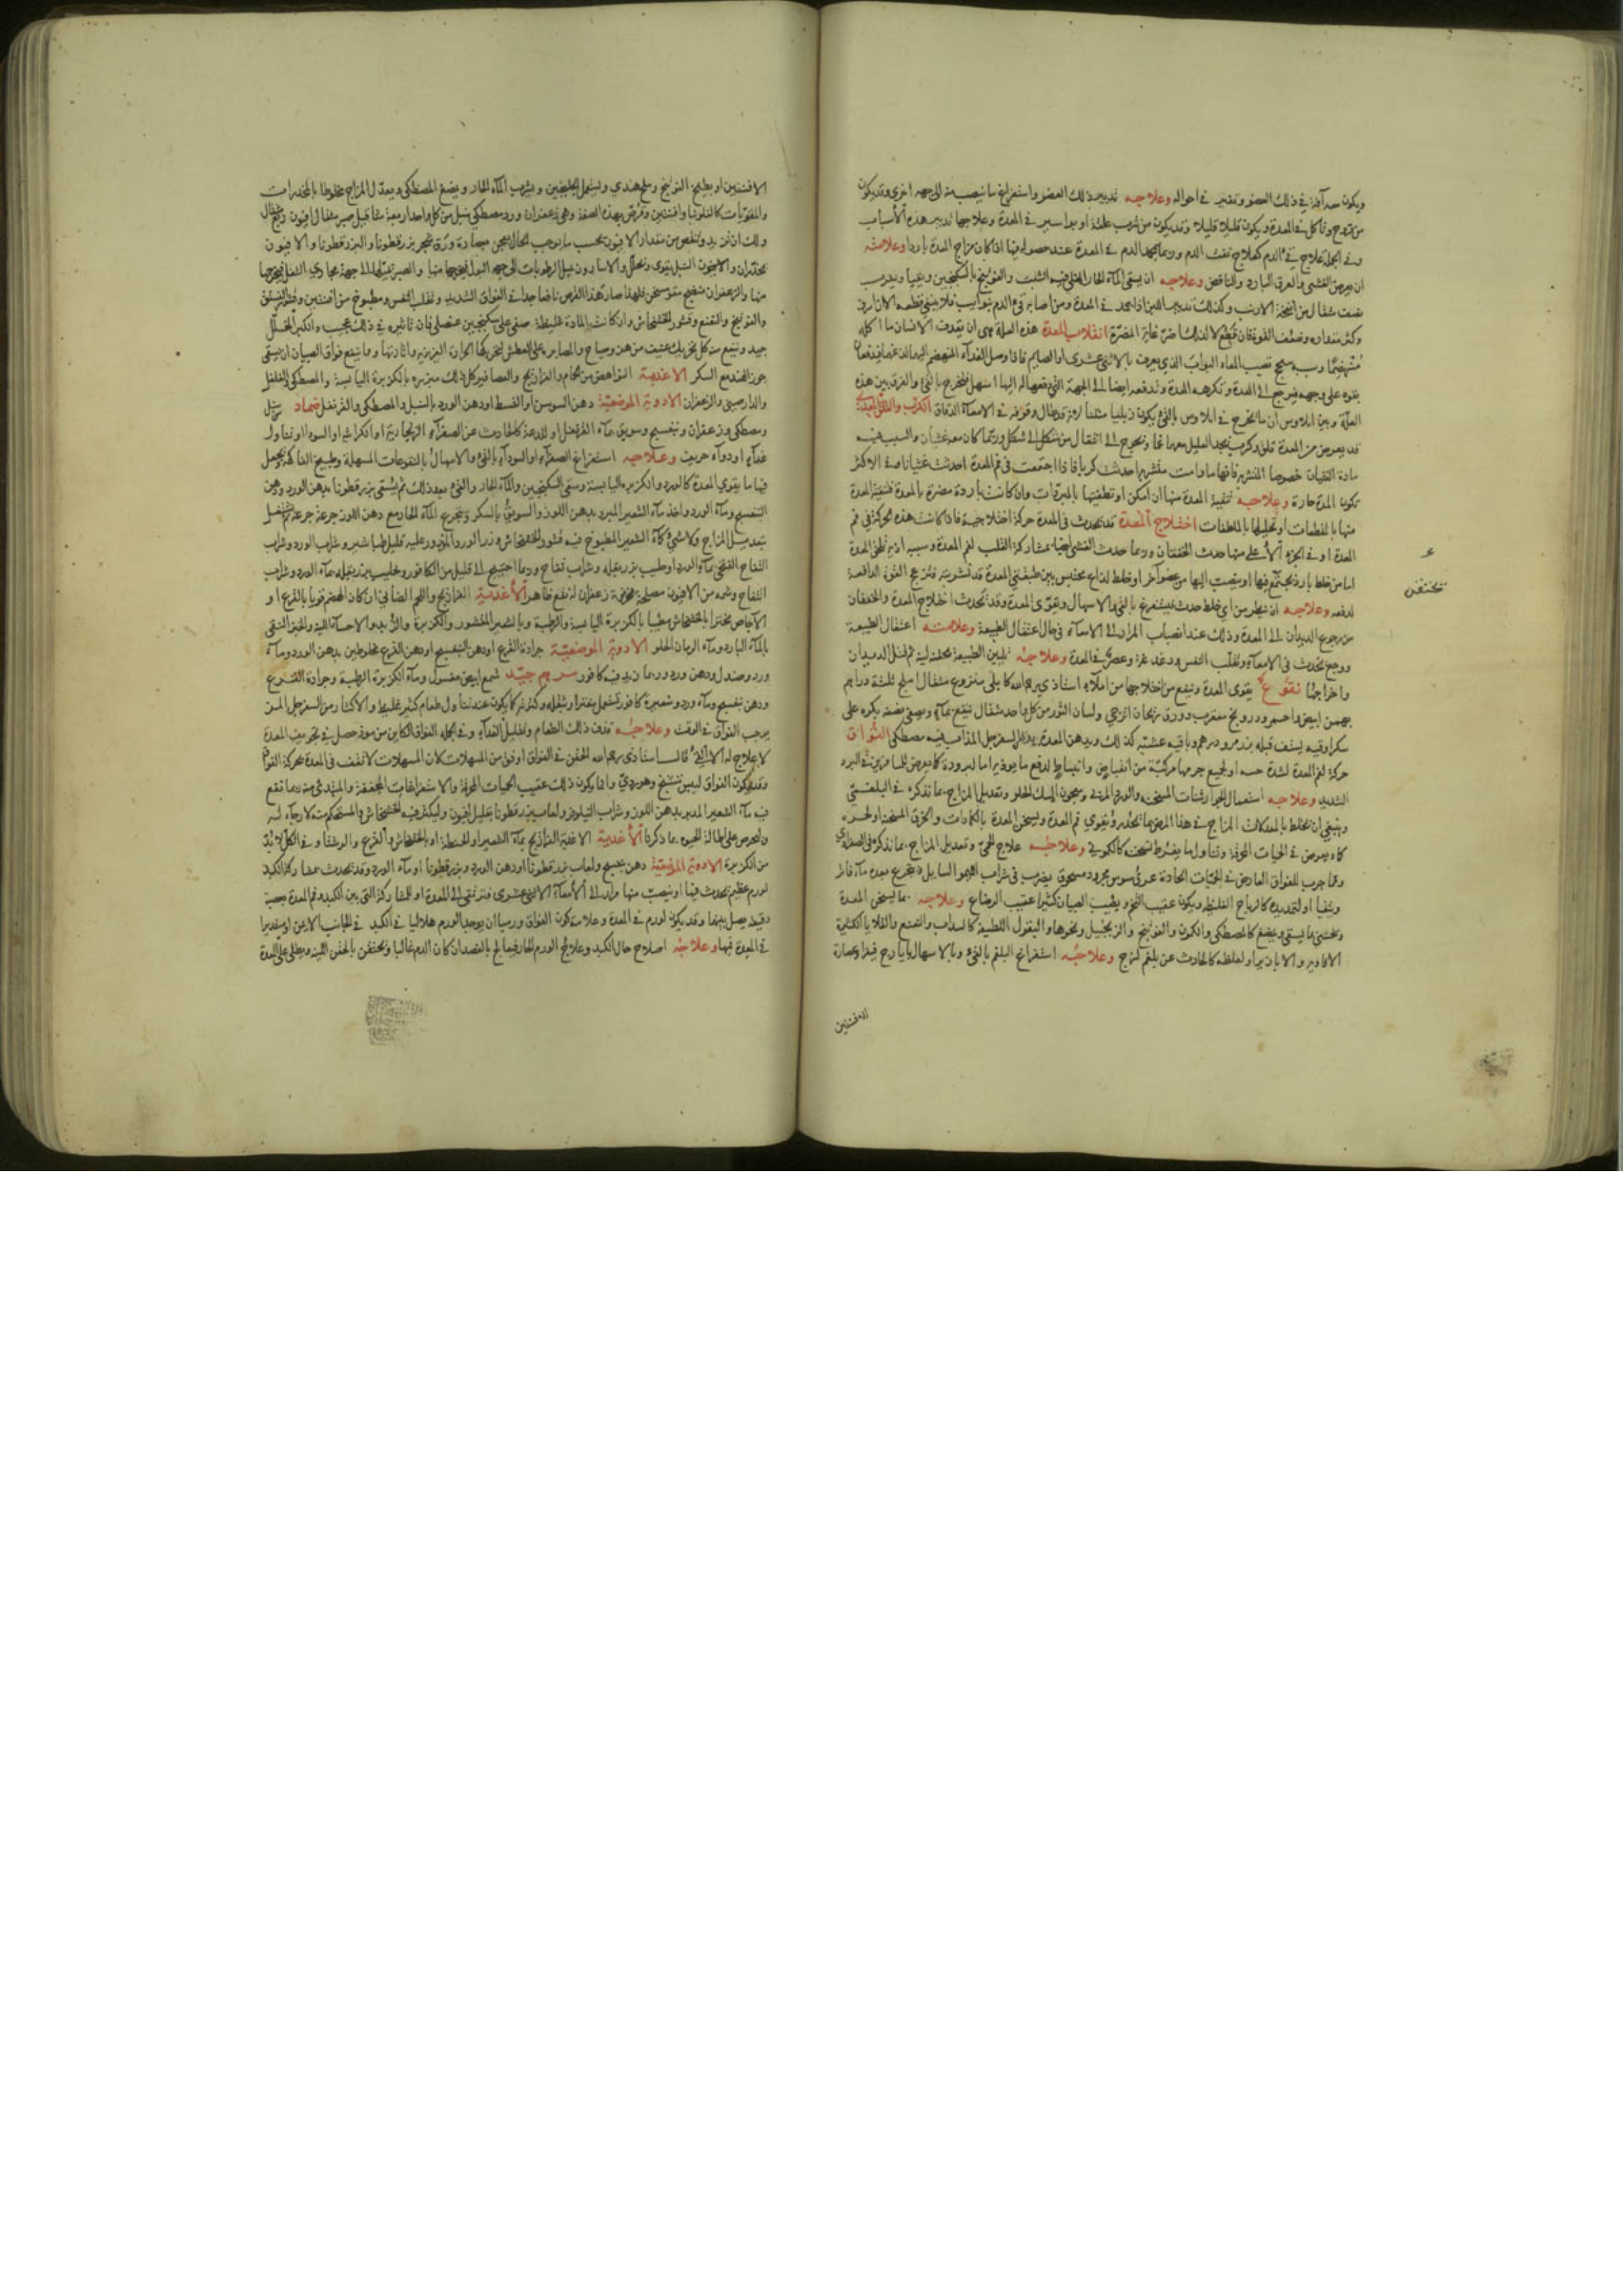 ويكون معه آفة في ذلك العضو وتغير في احواله وعلاجه تدبير ذلك العضو واستفراغ ما ينصب منه الى جهة اخرى وقد يكون
من قروح وتاكل في المعدة ويكون قليلا قليلا وقد يكون من شرب علقة او بواسير في المعدة وعلاجها تدبير هذه الأسباب
وفي الجملة علاج قيء الدم كعلاج نفث الدم وربما يجمد الدم في المعدة عند حصوله فيها اذا كان مزاج المعدة باردا وعلامته
ان يعرض الغشي والعرق البارد والنافض وعلاجه ان يسقى المآء الحار المغلي فيه الشبت والفوتنج بالسكنجبين
نصف مثقال من انفحة الارنب وكذلك تدبير اللبن اذا تجمد في المعدة ومن اصابه قيء الدم
وكثر مقداره وضعف القوة انقلاب المعدة هذه العلة هي ان يقذف الانسان ما اكله
الذي يعرف بالاثنى عشرى او الصايم فاذا وصل الغدآء المنهضم
يقوه على وجهه فيرجع الى المعدة وتكرهه المعدة وتدفعه ايضا الى الجهة التي دفعها اليها اسهل فيخرج بالقيء والفرق بين هذه
العلة وبين ايلاوس ان ما يخرج في ايلاوس بالقيء يكون زبليا الكرب والقلق المعدي
قد يعرض من المعدة قلق وكرب يجد العليل معهما غما ويحوج الى انتقال من شكل الى شكل وربما كان معه غثيان والسبب فيه
مادة الغثيان خصوصا المتشربة فانها ما دامت متشربة احدثت كربا فاذا اجتمعت في فم المعدة احدثت غثيانا وفي الاكثر
تكون المدة حارة وعلاجه تنقية المعدة منها ان امكن او تطفيتها بالمبردات وان كانت باردة مضرة بالمعدة فتنقية المعدة
منها بالمقطعات او تحليلها بالملطفات اختلاج المعدة قد يحدث في المعدة حركة اختلاجية فاذا كانت هذه الحركة في فم
المعدة او في الجزء الأعلى منها حدث الخفقان وربما حدث الغشي ايضا بمشاركة القلب لفم المعدة وسببه
اما من خلط بارد يجتمع فيها او ينصب اليها من عضو آخر او خلط لذاع محتبس بين طبقتي المعدة قد تشربته فتزعج القوة الدافعة
لدفعه وعلاجه ان ينظر من اي خلط حدث فيستفرغ بالقيء والاسهال وتقوى المعدة وقد يحدث اختلاج المعدة والخفقان
من رجوع الديدان الى المعدة وذلك عند انصباب المرار الى الامعآء في حال اعتقال الطبيعة وعلامته اعتقال الطبيعة
ووجع يحدث في الامعآء وتقلب النفس ودغدغة وعصر في المعدة وعلاجه تليين الطبيعة بحقنة لينة ثم لقتل الديدان
واخراجها نقوع يقوى المعدة وينفع من اختلاجها من املآء استاذي يرحمه الله كابلى منزوع مثقال املج ثلثة دراهم
بهمن ابيض واحمر ودرونج عقربي وورق ريحان اترجي ولسان الثور من كل واحد مثقال ينقع بمآء ويصفى نصفه بكره على
سكر اوقيه يستف قبله بزر مر ودرهم وباقيه عشية كذلك ويدهن المعدة بدهن السفرجل المذاب فيه مصطكى الفُواق
حركة لفم المعدة لشدة حسه او لجميع جرمها مركبة من انقباض وانبساط لدفع ما يوذيه اما لبرودة كما يعرض للمسافرين في البرد
الشديد وعلاجه استعمال الجوارشنات المسخنه والورد المربى ومعجون المسك الحلو وتعديل المزاج بما نذكره في البلغمي
وينبغي ان يخلط بالمعدلات المزاج في هذا المرض ما يخدر ويقوي فم المعدة وتسخن المعدة بالكمادات والخرق المسخنة او لحر
كما يعرض في الحميات المحرقة وتناول ما يفرط تسخينه كالكموني وعلاجه علاج الحمى وتعديل المزاج بما نذكره في الصفراوي
ومما جرب للفواق العارض في الحميات الحادة عرق سوس مجرود مسحوق يضرب في شراب ويتجرع بعده مآء فاتر
ويتقيا او لتمديده كالرياح الغليظه ويكون عقيب التخم ويصيب الصبيان كثيرا عقيب الرضاع وعلاجه بما يسخن المعدة
ويخشى بما يسقى ويمضغ كالمصطكى والكمون والفوتنج والزنجبيل ونحوها والبقول اللطيفة كالسداب والنعنع والقلايا الكثيرة
الافاويه والابازير او لغلظه كالحادث عن بلغم لزج وعلاجه استفراغ البلغم بالقيء وبالاسهال بايارج فيقرا وعصارة
الافسنتين
تحتقن
الافسنتين او بطبيخ الفوتنج وملح هندي ويستعمل الجلنجبين ويشرب المآء الحار ويمضغ المصطكى ويعدل المزاج مخلوطا بالمخدرات
والمقويات كالفلونيا وافسنتين وقرص بهذه الصفة وهي زعفران ورد مصطكى سنبل من كل واحد اربعة مثاقيل صبر مثقال افيون
ولك ان تزيد وتنقص من مقدار الافيون بحسب ما يوجب الحال يعجن بعصارة ورق بزرقطونا والبزرقطونا والافيون
مخدران والافيون السنبل يقوى ويحلل والاسارون يميل الرطوبات الى جهة البول فيخرجها منها والصبر يميلها الى جهة مجاري الثفل فيخرجها
منها والزعفران منضج مقو مسخن فلهذا صار هذا القرص نافعا جدا في الفواق الشديد وتقلب النفس ومطبوخ من افسنتين
والفوتنج والنعنع وقشور الخشخاش وان كانت المادة غليظة صفى على سكنجبين عنصلي فان تاثيره في ذلك عجيب
جيد وينفع منه كل تحريك عنيف من هز وصياح والمصابرة على العطش لتحريكها الحرارة الغريزية واثارتها ومما ينفع فواق الصبيان ان يسقى
جوز الهند مع السكر الاغدية النواهض من الحمام والفراريج والعصافير كل ذلك مبزره بالكزبرة اليابسة والمصطكى والفلفل
والدارصيني والزعفران الادوية الموضعية دهن السوسن او القسط او دهن الورد بالسنبل والمصطكى والقرنفل ضماد سنبل
ومصطكى وزعفران وبنفسج وسويق بمآء القرنفل او للذعة كالحادث عن الصفرآء الزنجارية او الكراثية او السودا او تناول
غدآء او دوآء حريف وعلاجه استفراغ الصفرآء او السودآء بالقيء والاسهال بالنقوعات المسهلة وطبيخ الفاكهة ويجعل
فيها ما يقوي المعدة كالورد والكزبره اليابسة وسقى السكنجبين والمآء الحار والقيء بعد ذلك ثم يسقى بزرقطونا بدهن الورد ودهن
البنفسج ومآء الورد واخذ مآء الشعير المبرد بدهن اللوز والسويق بالسكر ويتجرع المآء الحار مع دهن اللوز جرعة جرعة
بتعديل المزاج ولا شيء كمآء الشعير المطبوخ فيه قشور الخشخاش وزر الورد قليل طباشير وشراب الورد وشراب
التفاح وربما احتيج الى قليل من الكافور
التفاح وشمه من الافيون مصلحة زعفران لانه نفع ظاهر الأغدية الفراريج واللحم الضاني ان كان الهضم قويا بالقرع او
الاجاص بالخشخاش مطيبا بالكزبرة اليابسة والرطبة وبالشعير المقشور والكزبرة والزبد والاحسآء اللينة والخبز النقي
بالمآء البارد ومآء الرمان الحلو الادوية الموضعية جرادة القرع او دهن البنفسج او دهن القرع مخلوطين بدهن الورد ومآء
ورد وصندل ودهن ورد وربما زيد فيه كافور مرهم جيد شمع ابيض مغسول ومآء الكزبرة الرطبة وجرادة القرع
ودهن بنفسج ومآء ورد وشعيرة كافور كما يكون عند تناول طعام كثير غليظ والاكثار من السفرجل المز
يوجب الفواق في الوقت وعلاجه قذف ذلك الطعام وتقليل الغدآء وفي الجملة الفواق الكاين من موذ حصل في تجويف المعدة
لا علاج له الا القيء قال استاذي يرحمه الله الحقن في الفواق اوفق من المسهلات لان المسهلات لا تقف في المعدة بحركة الفواق
وقد يكون الفواق ليبس وتشنج وهو ردي وانما يكون ذلك عقيب الحميات المحرقة والاستفراغات المجففة والمبتدئ منه ربما نفع
فيه مآء الشعير المدبر بدهن اللوز وشراب النيلوفر ولعاب بزرقطونا بقليل افيون وليكثر فيه الخشخاش والمستحكم منه لا رجآء له
وليحرص على اطالة الحيوة بما ذكرنا الأغدية الاغدية الفراريج بمآء الشعير او الحنطة او بالخشخاش والقرع والوشا وفي الكل لا بد
من الكزبرة الادوية الموضعية دهن بنفسج ولعاب بزرقطونا او دهن الورد وبزرقطونا او مآء الورد وقد يحدث بمشاركة الكبد
لورم عظيم يحدث فيها او ينصب منها مرار الى الأمعآء الاثنى عشرى فترتقى الى المعدة او للمشاركة التي بين الكبد وفم المعدة بعصبة
دقيقة يصل بينهما وقد يكون لورم في المعدة وعلامة كون الفواق ورميا ان يوجد الورم هلاليا في الكبد في الجانب الايمن او مستديرا
في المعدة فيها وعلاجه اصلاح حال الكبد وعلاج الورم الحار فيعالج بالفصد ان كان الدم غالبا وتحتقن بالحقن اللينة ويطلى على المعدة